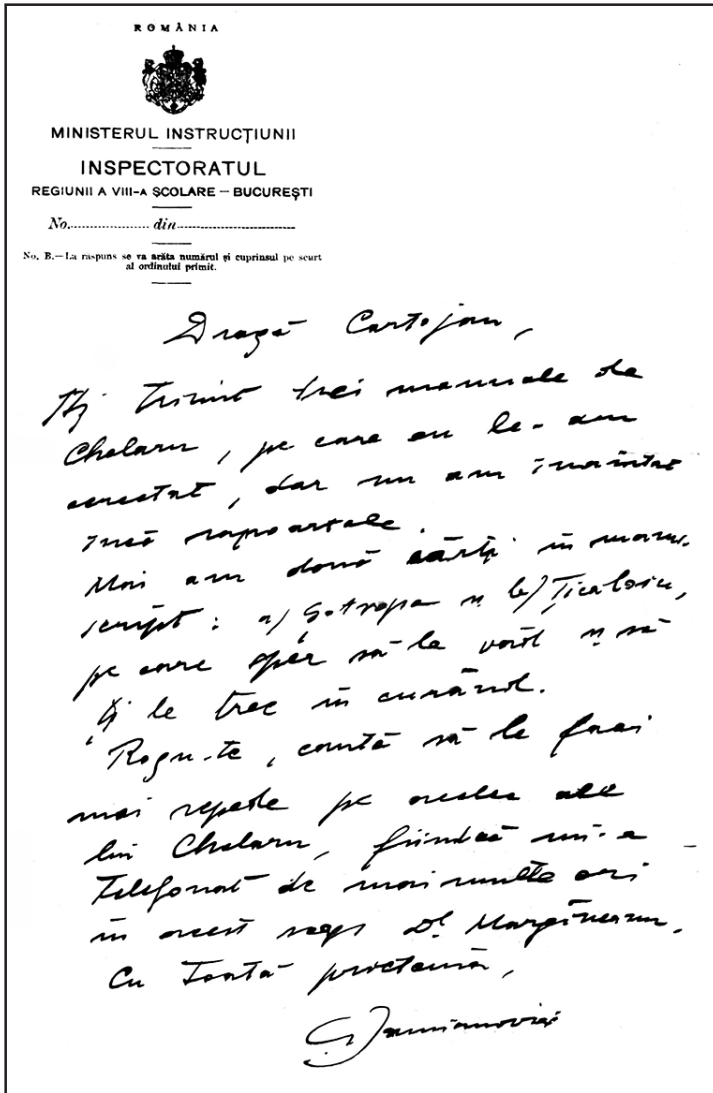 ROMÂNIA
MINISTERUL INSTRUCȚIUNII
INSPECTORATUL
REGIUNII A VIII-A ȘCOLARE — BUCUREȘTI
No................... din.............................
No. B.—La răspuns se va arăta numărul și cuprinsul pe scurt
al ordinului primit.
Dragă Cartojan,
Îți trimit trei manuale de
Chelaru, pe care eu le-am
cercetat, dar nu am înaintat
încă rapoartele.
Mai am două cărți în manu-
script: a/ Șotropa și b/ Țicaloiu,
pe care sper să le văd și să
ți le trec în curând.
Rogu-te, caută să le faci
mai repede pe acelea ale
lui Chelaru, fiindcă mi-a
telefonat de mai multe ori
în acest sens Dl. Margineanu.
Cu toată prietenia,